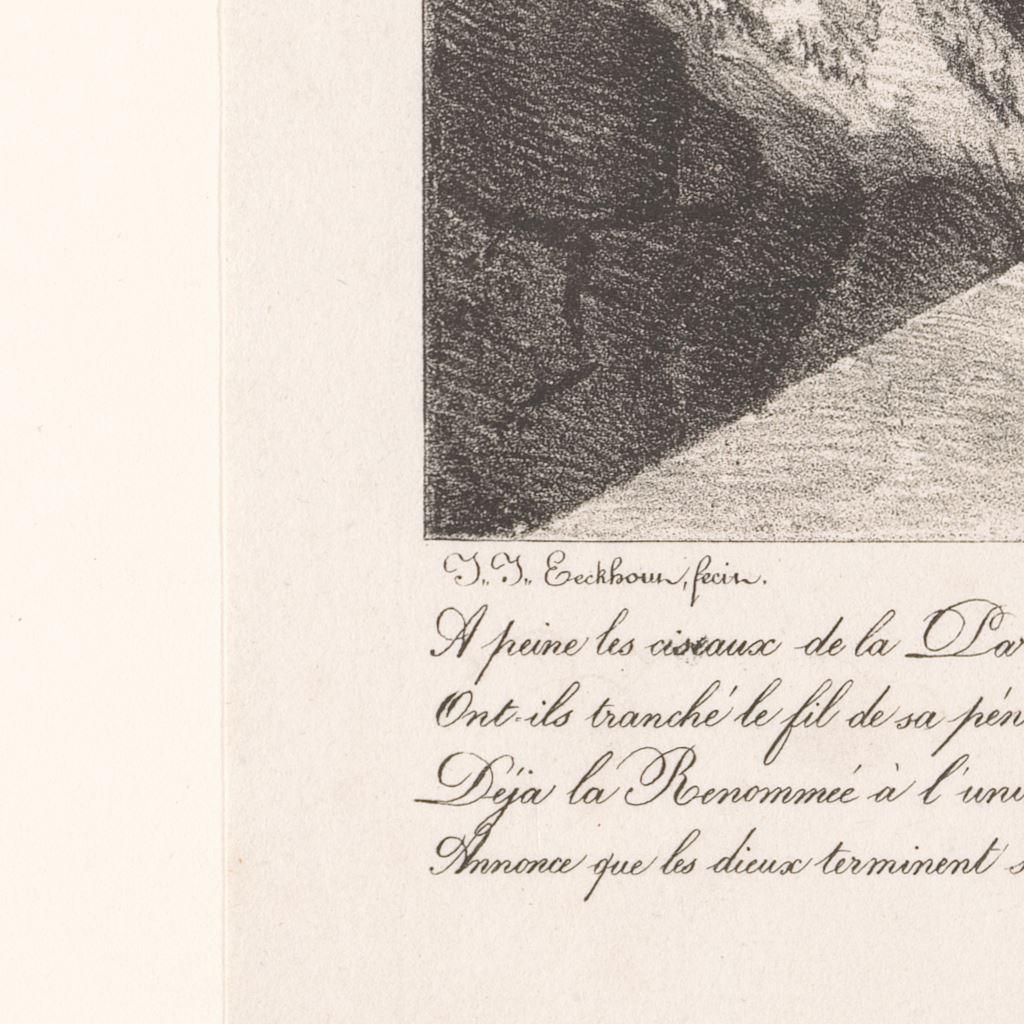 J. J. Eeckhout, fecit.
A peine les ciseaux de la Pa
Ont-ils tranché le fil de sa pén
Déja la Renommée à l'uni
Annonce que les dieux terminent s